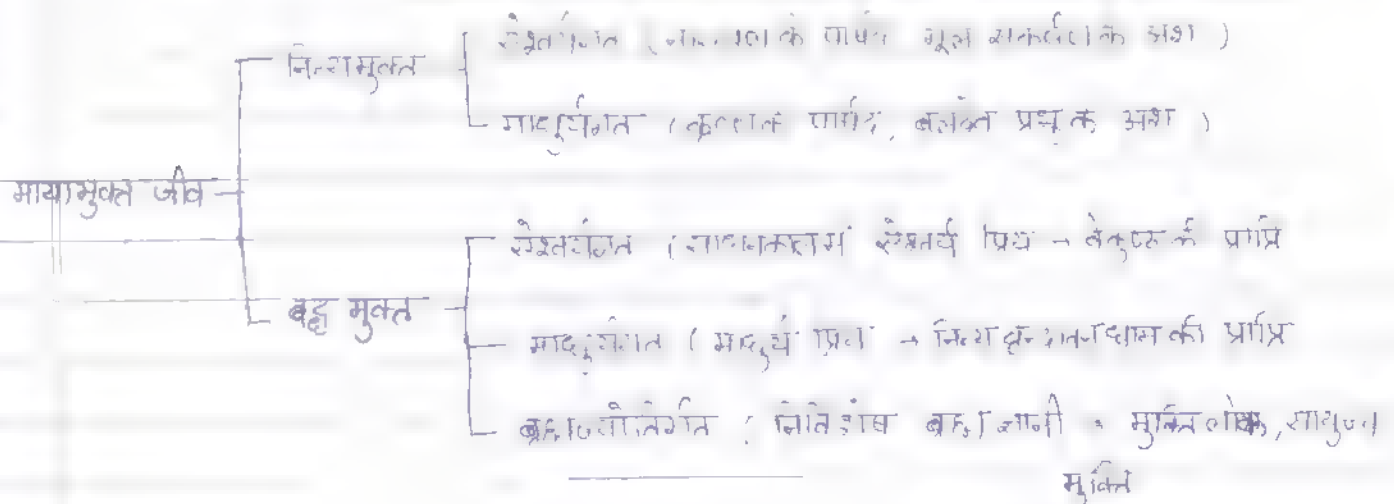 ऐश्वर्यगत (नारायण के पार्षद मूल संकर्षण के अंश )
नित्यमुक्त
माधुर्यगत (कृष्णके पार्षद, बलदेव प्रभु के अंश )
मायामुक्त जीव
ऐश्वर्यगत (साधनकालमें ऐश्वर्य प्रिय → वैकुण्ठ की प्राप्ति
बद्ध मुक्त
माधुर्यगत ( माधुर्य प्रिय → नित्य वृन्दावनधाम की प्राप्ति
ब्रह्मज्योतिर्गत : निर्विशेष ब्रह्मज्ञानी मुक्ति लोक, सायुज्य
मुक्ति